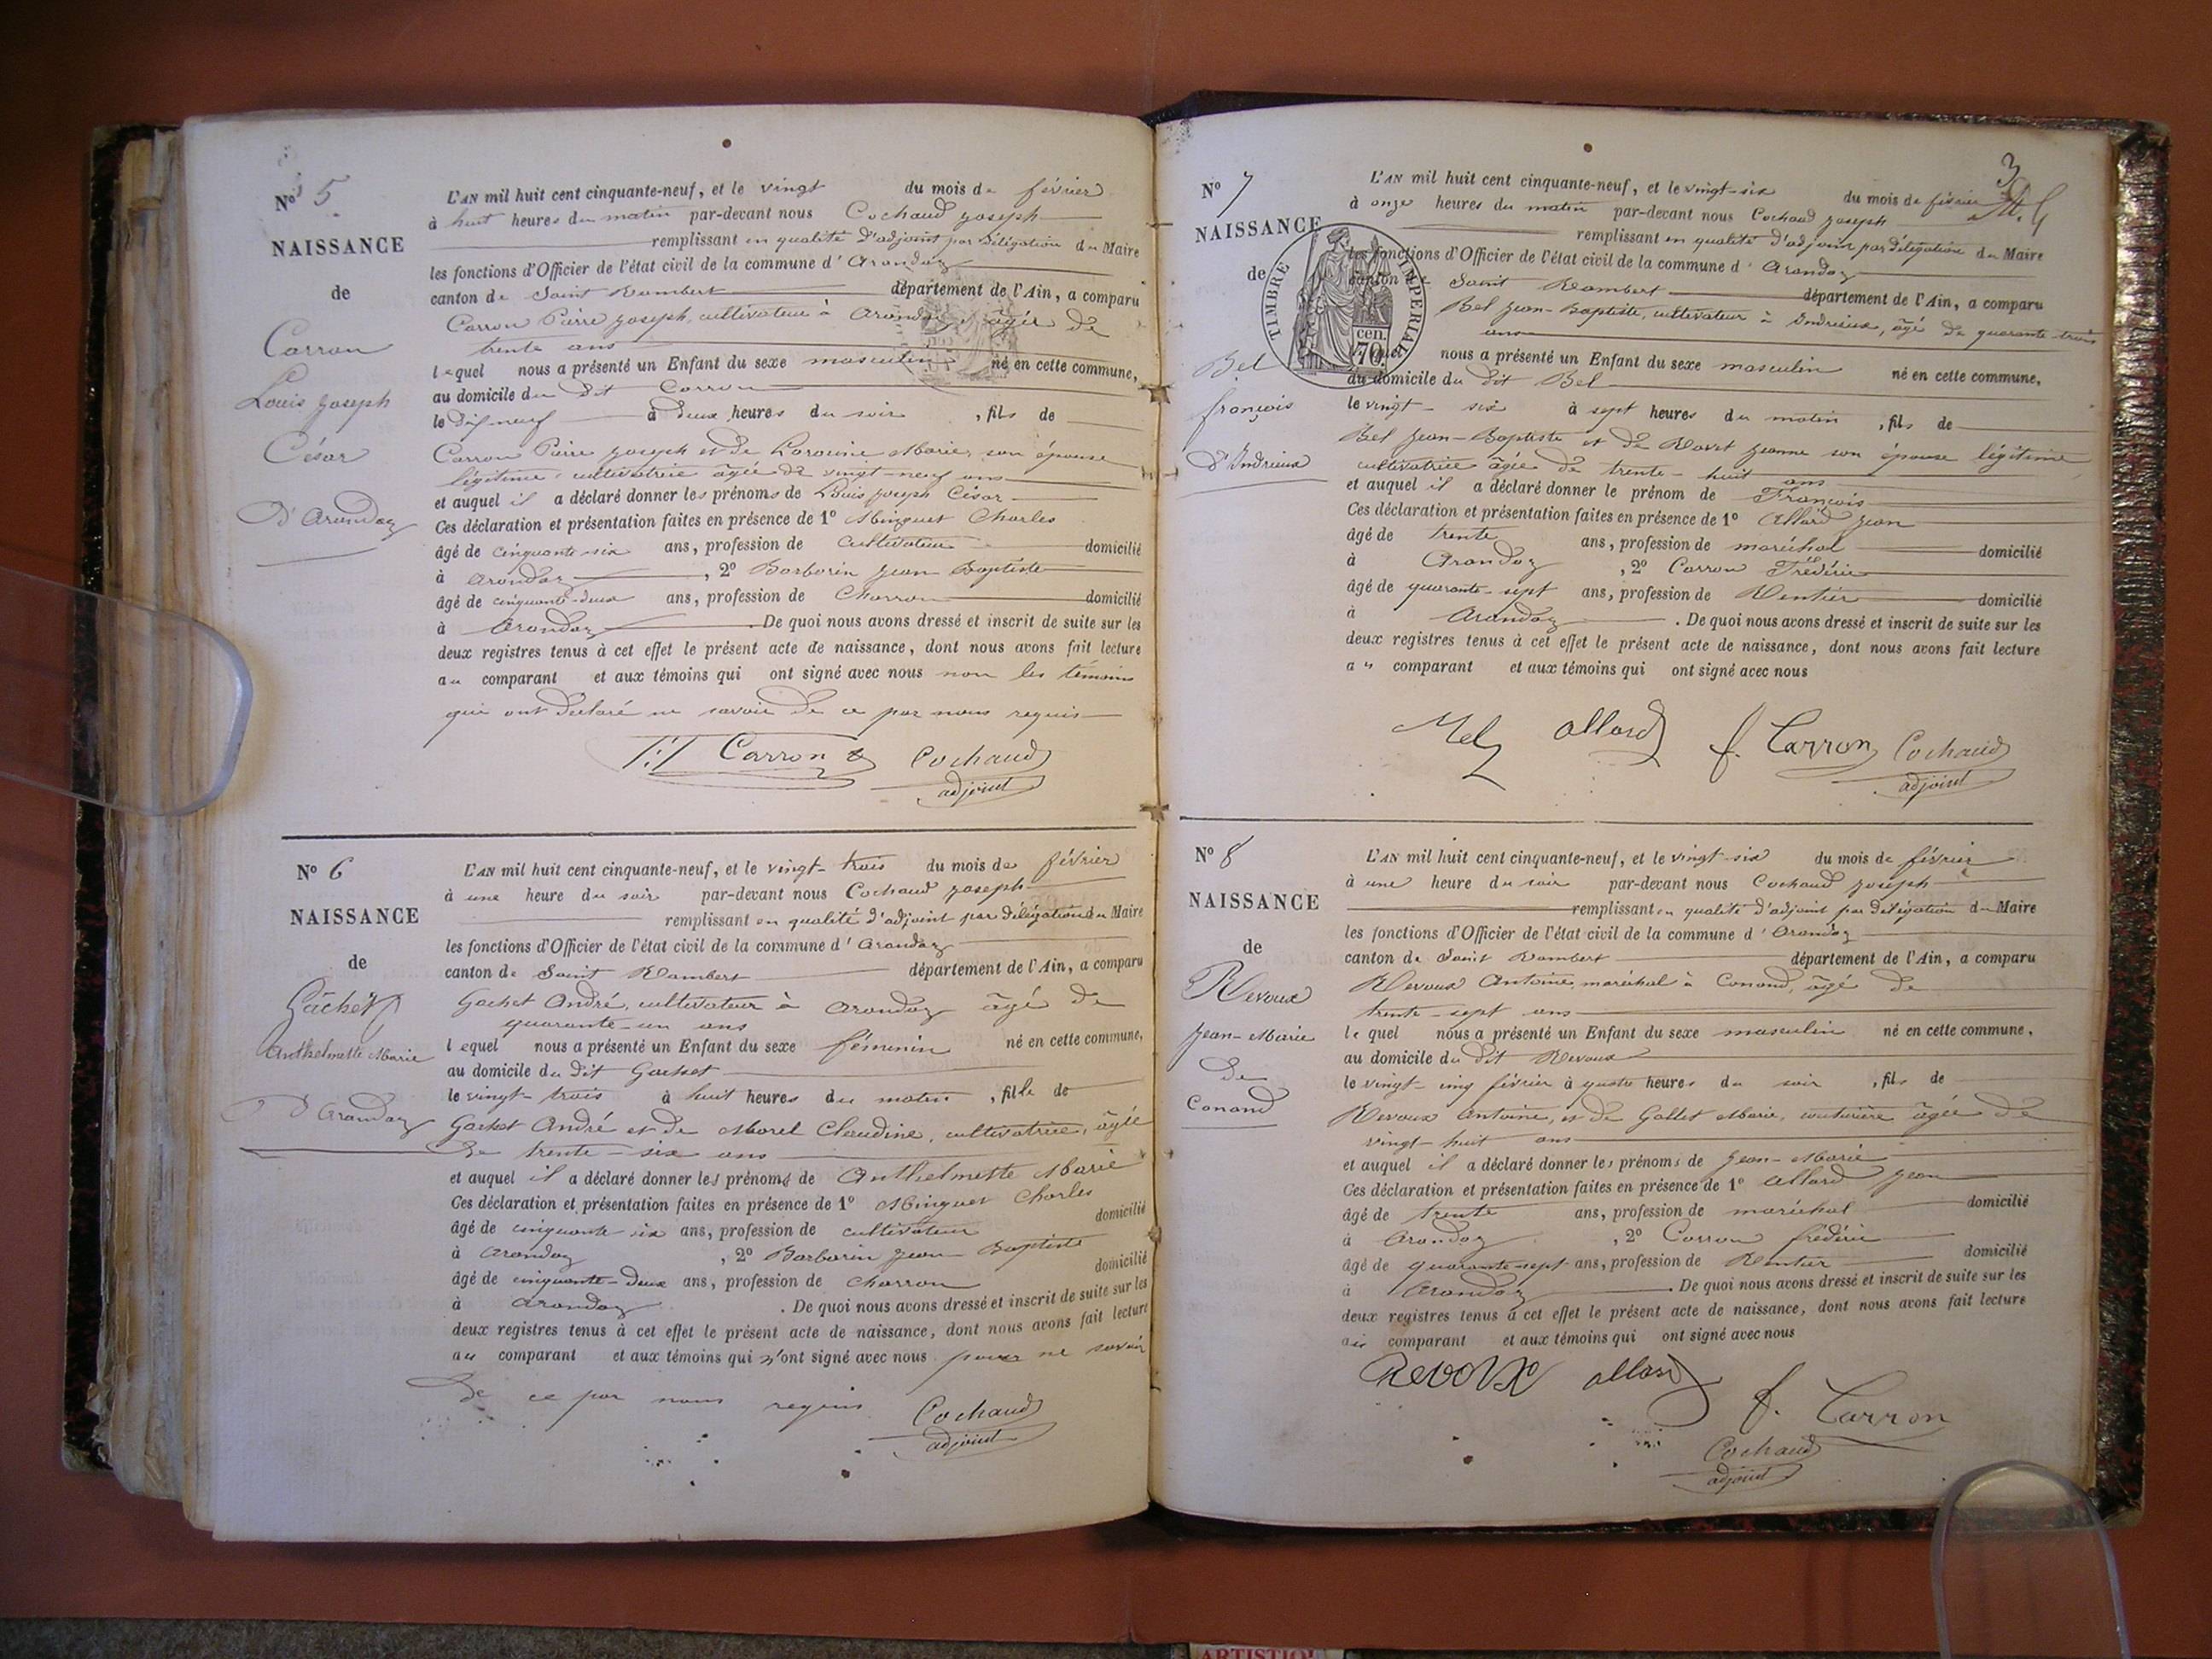 N° 5
NAISSANCE
de
Carron
Louis Joseph
César
D'Arandaz
L'AN mil huit cent cinquante-neuf, et le vingt du mois de février
à huit heures du matin par-devant nous Cochaud Joseph
remplissant en qualité d'adjoint par délégation du Maire
les fonctions d'Officier de l'état civil de la commune d'Arandaz
canton de Saint Rambert département de l'Ain, a comparu
Carron Pierre Joseph, cultivateur à Arandaz, âgé de
trente ans
lequel nous a présenté un Enfant du sexe masculin né en cette commune,
au domicile du dit Carron
le dix neuf à deux heures du soir, fils de
Carron Pierre Joseph et de Marie, son épouse
légitime, cultivatrice âgée de vingt-neuf ans
et auquel il a déclaré donner les prénoms de Louis Joseph César
Ces déclaration et présentation faites en présence de 1° Minguet Charles
âgé de cinquante-six ans, profession de Cultivateur domicilié
à Arandaz, 2° Barbarin Jean Baptiste
âgé de cinquante-deux ans, profession de Charron domicilié
à Arandaz. De quoi nous avons dressé et inscrit de suite sur les
deux registres tenus à cet effet le présent acte de naissance, dont nous avons fait lecture
au comparant et aux témoins qui ont signé avec nous non les témoins
qui ont déclaré ne savoir de ce par nous requis
Carron Cochaud
adjoint
N° 6
NAISSANCE
de
Gachet
Anthelmette Marie
D'Arandaz
L'AN mil huit cent cinquante-neuf, et le vingt-trois du mois de février
à une heure du soir par-devant nous Cochaud Joseph
remplissant en qualité d'adjoint par délégation du Maire
les fonctions d'Officier de l'état civil de la commune d'Arandaz
canton de Saint Rambert département de l'Ain, a comparu
Gachet André, cultivateur à Arandaz âgé de
quarante-un ans
lequel nous a présenté un Enfant du sexe féminin né en cette commune,
au domicile du dit Gachet
le vingt-trois à huit heures du matin, fille de
Gachet André et de Morel Claudine, cultivatrice, âgée
de trente-six ans
et auquel il a déclaré donner les prénoms de Anthelmette Marie
Ces déclaration et présentation faites en présence de 1° Minguet Charles
âgé de cinquante six ans, profession de cultivateur domicilié
à Arandaz, 2° Barbarin Jean Baptiste
âgé de cinquante-deux ans, profession de charron domicilié
à Arandaz. De quoi nous avons dressé et inscrit de suite sur les
deux registres tenus à cet effet le présent acte de naissance, dont nous avons fait lecture
au comparant et aux témoins qui n'ont signé avec nous pour ne savoir
de ce par nous requis Cochaud
adjoint
3
N° 7
NAISSANCE
de
Bel
françois
D'Indrieux
TIMBRE IMPERIAL
cen.
70
L'AN mil huit cent cinquante-neuf, et le vingt-six du mois de février
à onze heures du matin par-devant nous Cochaud Joseph
remplissant en qualité d'adjoint par délégation du Maire
les fonctions d'Officier de l'état civil de la commune d'Arandaz
canton de Saint Rambert département de l'Ain, a comparu
Bel Jean-Baptiste, cultivateur à Indrieux, âgé de quarante trois
ans
lequel nous a présenté un Enfant du sexe masculin né en cette commune,
au domicile du dit Bel
le vingt-six à sept heures du matin, fils de
Bel Jean-Baptiste et de Jeanne son épouse légitime
cultivatrice âgée de trente-huit ans
et auquel il a déclaré donner le prénom de François
Ces déclaration et présentation faites en présence de 1° Allard Jean
âgé de trente ans, profession de maréchal domicilié
à Arandaz, 2° Carron Frédéric
âgé de quarante-sept ans, profession de Rentier domicilié
à Arandaz. De quoi nous avons dressé et inscrit de suite sur les
deux registres tenus à cet effet le présent acte de naissance, dont nous avons fait lecture
au comparant et aux témoins qui ont signé avec nous
allard f. Carron Cochaud
adjoint
N° 8
NAISSANCE
de
Revoux
Jean-Marie
de
Conand
L'AN mil huit cent cinquante-neuf, et le vingt-six du mois de février
à une heure du soir par-devant nous Cochaud Joseph
remplissant en qualité d'adjoint par délégation du Maire
les fonctions d'Officier de l'état civil de la commune d'Arandaz
canton de Saint Rambert département de l'Ain, a comparu
Revoux Antoine, maréchal à Conand, âgé de
trente-sept ans
lequel nous a présenté un Enfant du sexe masculin né en cette commune.
au domicile du dit Revoux
le vingt-cinq février à quatre heures du soir, fils de
Revoux Antoine, et de Gallet Marie, couturière âgée de
vingt-huit ans
et auquel il a déclaré donner les prénoms de Jean-Marie
Ces déclaration et présentation faites en présence de 1° Allard Jean
âgé de trente ans, profession de maréchal domicilié
à Arandaz, 2° Carron frédéric
âgé de quarante-sept ans, profession de Rentier domicilié
à Arandaz. De quoi nous avons dressé et inscrit de suite sur les
deux registres tenus à cet effet le présent acte de naissance, dont nous avons fait lecture
au comparant et aux témoins qui ont signé avec nous
Revoux allard
f. Carron
Cochaud
adjoint